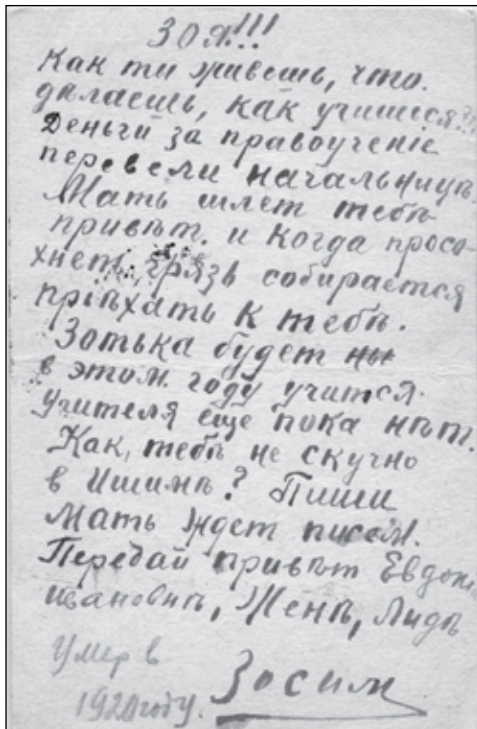 ЗОЯ!!!
Как ты живешь, что
дѣлаешь, как учишься??
Деньги за правоученіе
перевели начальницѣ.
Мать шлет тебѣ
привѣт. и когда просо-
хнет грязь собирается
пріѣхать к тебѣ.
Зотька будет
в этом году учится.
Учителя еще пока нѣт.
Как, тебѣ не скучно
в Ишимѣ? Пиши
Мать ждет писем.
Передай привѣт
ивановнѣ, Женѣ, Лидѣ
Умер в
1920 году.
Зосим